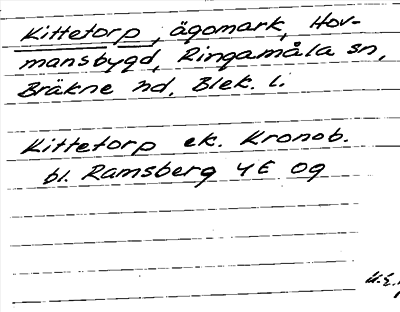 Kittetorp, ägomark, Hov-
mansbygd, Ringamåla sn,
Bräkne hd. Blek. l.
Kittetorp ek. Kronob.
bl. Ramsberg 4E 0g